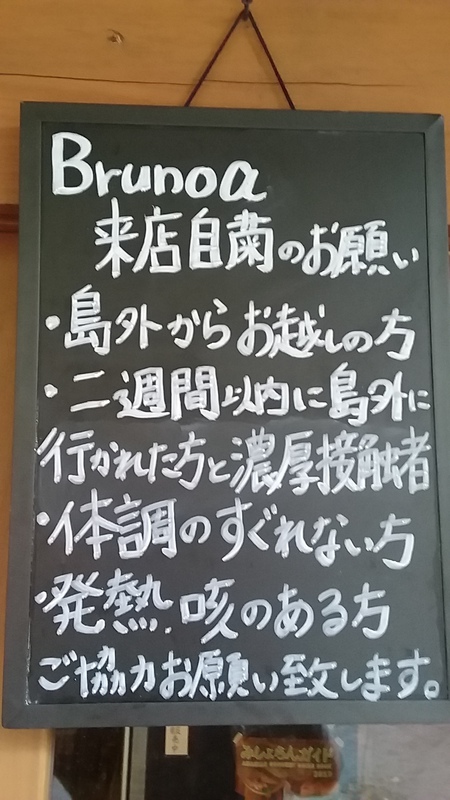 Brunoa
来店自粛のお願い
・島外からお越しの方
・二週間以内に島外に
行かれた方と濃厚接触者
・体調のすぐれない方
・発熱.咳のある方
ご協力お願い致します。
販売中